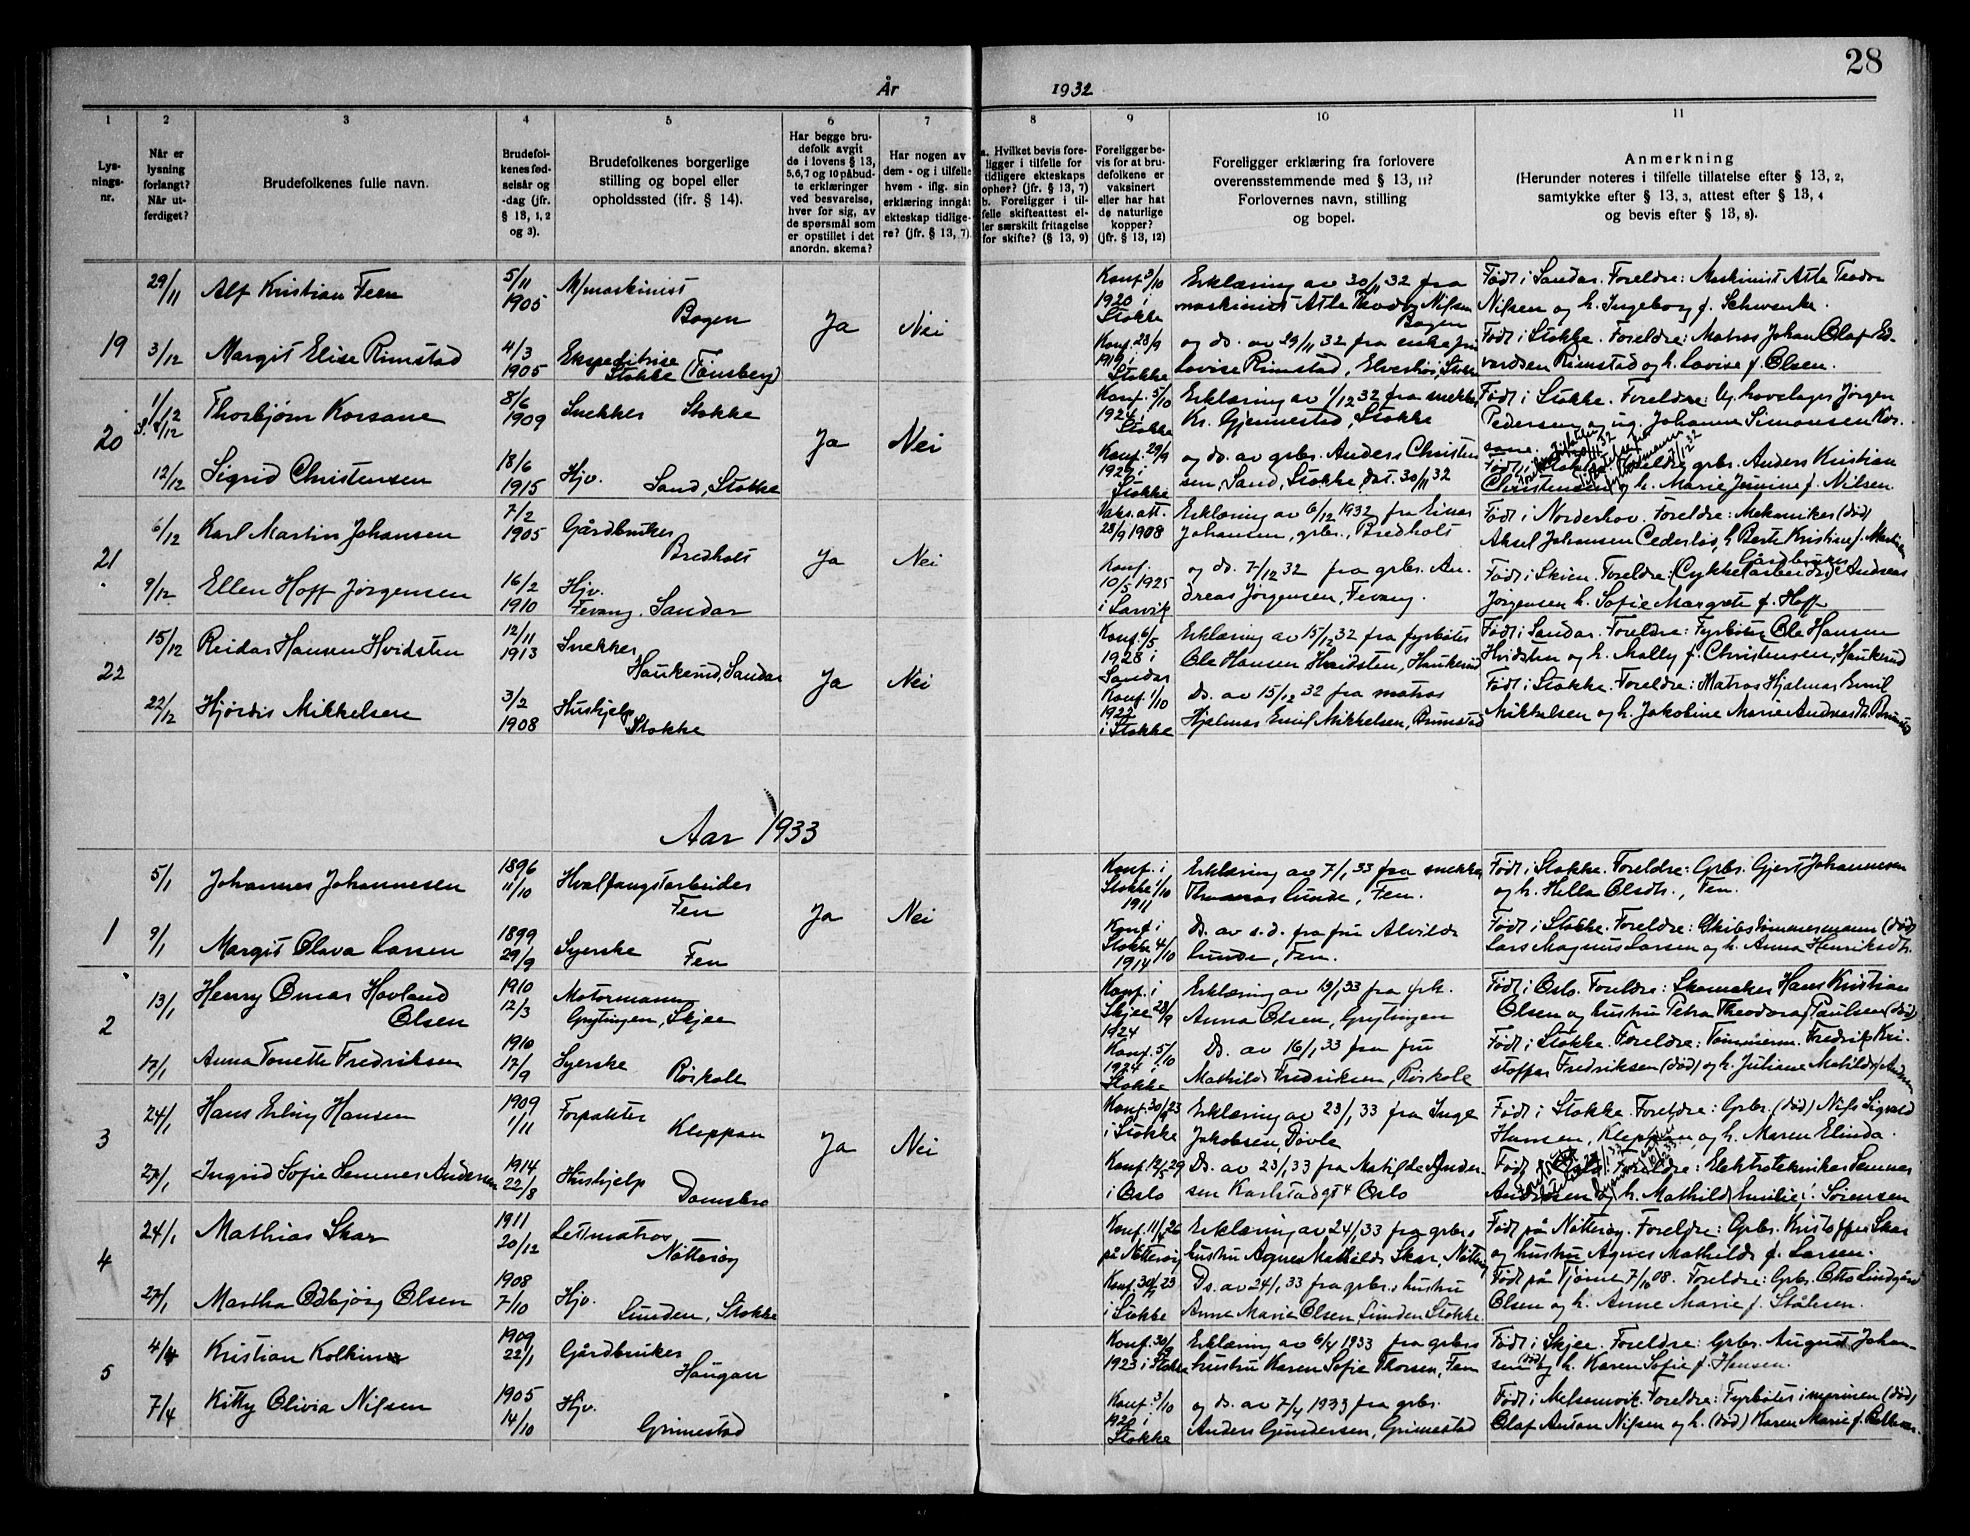 28
År 1932
1 2 3 4 5 6 7 8 9 10 11
Lys-
nings-
nr.
Når er
lysning
forlangt?
Når ut-
ferdiget?
Brudefolkenes fulle navn.
Brudefol-
kenes fød-
selsår og
-dag (jfr.
§ 13, 1, 2
og 3).
Brudefolkenes borgerlige
stilling og bopel eller
opholdssted (ifr. § 14).
Har begge bru-
defolk avgit
de i lovens § 13,
5,6,7 og 10 påbud-
te erklæringer
ved besvarelse,
hver for sig, av
de spørsmål som
er opstillet i det
anordn. skema?
Har nogen av
dem - og i tilfelle
hvem - iflg. sin
erklæring inngåt
ekteskap tidlige-
re? (jfr. § 13, 7).
a. Hvilket bevis fore-
ligger i tilfelle for
tidligere ekteskaps
ophør? (jfr. § 13, 7)
b. Foreligger i til-
felle skifteattest el-
ler særskilt fritagelse
for skifte? (§ 13, 9)
Foreligger be-
vis for at bru-
defolkene er
vaksinert
eller har hat
de naturlige
kopper?
(jfr. § 13, 12)
Foreligger erklæring fra forlovere
overensstemmende med § 13, 11?
Forlovernes navn, stilling
og bopel.
Anmerkning
(Herunder noteres i tilfelle tillatelse efter § 13, 2,
samtykke efter § 13, 3, attest efter § 13, 4
og bevis efter § 13, 8).
19
29/11
Alf Kristian Feen
5/11
1905
M/maskinist
Bogen
Ja
Nei
Konf. 3/10
1920 i
Stokke
Erklæring av 30/11 32 fra
maskinist Atle Nilsen
Bogen
Født i Sandar. Foreldre: Maskinist Atle Teodor
Nilsen og h. Ingeborg f. Schwenke.
3/12
Margit Elise Rimstad
4/3
1905
Ekspeditrise
Stokke (Tønsberg)
Konf. 28/9
1919 i
Stokke
og do. av 29/11 32 fra enkefru
Lovise Rimstad, Elverhøi, Stokke
Født i Stokke. Foreldre: Matros Johan Olaf Ed-
vardsen Rimstad og h. Lovise f. Olsen.
20
1/12
Thorbjørn Korsane
8/6
1909
Snekker Stokke
Ja
Nei
Konf. 5/10
1924 i
Stokke
Erklæring av 1/12 32 fra snekker
Kr. Gjennestad, Stokke
Født i Stokke. Foreldre: Ug. hovslager Jørgen
Pedersen og ug. Johanne Simonsen Kor-
sane.
12/12
Sigrid Christensen
18/6
1915
Hjv.
Sand, Stokke
Konf. 29/9
1929 i
Stokke
og do. av grbr. Anders Christen
sen, Sand, Stokke, dat. 30/11 32
Født i Stokke. Foreldre grbr. Anders Kristian
Christensen og h. Marie Jensine f. Nilsen.
21
6/12
Karl Martin Johansen
7/2
1905
Gårdbruker
Bredholt
Ja
Nei
Vaks.att.
28/9 1908
Erklæring av 6/12 1932 fra Einar
Johansen, grbr., Bredholt
Født i Norderhov. Foreldre: Mekaniker (død)
Aksel Johansen Cederløv, h. Berte Kristine f.
9/12
Ellen Hoff Jørgensen
16/2
1910
Hjv.
Fevang, Sandar
Konf.
10/5 1925
i Larvik
og do. 7/12 32 fra grbr. An-
dreas Jørgensen, Fevang.
Gårdbruker
Født i Skien. Foreldre: (Cykkelarbeider) Andreas
Jørgensen h. Sofie Margrete f. Hoff
22
15/12
Reidar Hansen Hvidsten
12/11
1913
Snekker
Haukerud, Sandar
Ja
Nei
Konf. 6/5
1928 i
Sandar
Erklæring av 15/12 32 fra fyrbøter
Ole Hansen Hvidsten, Haukerud
Født i Sandar. Foreldre: Fyrbøter Ole Hansen
Hvidsten og h. Mally f. Christensen, Haukerud
22/12
Hjørdis Mikkelsen
3/2
1908
Hushjelp
Stokke
Konf. 1/10
1922
i Stokke
Do. av 15/12 32 fra matros
Hjalmar Emil Mikkelsen, Brunstad
Født i Stokke. Foreldre: Matros Hjalmar Emil
Mikkelsen og h. Jakobine Marie Andreasdtr.
Aar 1933
1
5/1
Johannes Johannesen
1896
11/10
Hvalfangstarbeider
Fen
Ja
Nei
Konf. i
Stokke 1/10
1911
Erklæring av 7/1 33 fra snekker
Thomas Lunde, Fen.
Født i Stokke. Foreldre: Grbr. Gjert Johannesen
og h. Hella Olsdtr., Fen.
9/1
Margit Olava Larsen
1899
29/9
Syerske
Fen
Konf i
Stokke 4/10
1914
Do. av s.d. fra fru Alvilde
Lunde, Fen.
Født i Stokke. Foreldre: Skibstømmermann (død)
Lars Magnus Larsen og h. Anna Henriksdtr.
2
13/1
Henry Omar Hovland
Olsen
1910
12/3
Motormann
Grytingen, Skjee
Konf. i
Skjee 28/9
1924
Erklæring av 13/1 33 fra frk.
Anna Olsen, Grytingen
Født i Oslo. Foreldre: Skomaker Hans Kristian
Olsen og hustru Petra Theodora f Paulsen (død)
17/1
Anna Tonette Fredriksen
1910
17/9
Syerske
Rørkoll
Konf. 5/10
1924 i
Stokke
Do. av 16/1 33 fra fru
Mathilde Fredriksen, Rørkole
Født i Stokke. Foreldre: Tømmerm. Fredrik Kri-
stoffer Fredriksen (død) og h. Juliane Mathilde f
3
24/1
Hans Erling Hansen
1909
1/11
Forpakter
Kleppan
Ja
Nei
Konf. 30/9 23
i Stokke
Erklæring av 23/1 33 fra Inge
Jakobsen, Døvle
Født i Stokke. Foreldre: Grbr. (død) Nils Sigvald
Hansen, Kleppan, og h. Maren Elinda.
27/1
Ingrid Sofie Semmes Andersen
1914
22/8
Hushjelp
Damsbro
Konf. 12/5 29
i Oslo
Do. av 23/1 33 fra Matilde Ander-
sen Karlstadgt 4 Oslo
Født i Oslo. Foreldre: Elektrotekniker Semmes
Andersen og h. Mathilde Emilie f. Sørensen
4
24/1
Mathias Skar
1911
20/12
Letmatros
Nøtterøy
Konf. 11/4 26
på Nøtterøy
Erklæring av 24/1 33 fra grbrs
hustru Agnes Mathilde Skar, Nøtterøy
Født på Nøtterøy. Foreldre: Grbr. Kristoffer Skar
og hustru Agnes Mathilde f. Larsen.
27/1
Martha Odbjørg Olsen
1908
7/10
Hjv.
Lunden, Stokke
Konf. 30/9 23
i Stokke
Do. av 24/1 33 fra grbr.s hustru
Anne Marie Olsen Lunden Stokke
Født på Tjøme 7/10 08. Foreldre: Grbr. Otto Lindgård
Olsen og h. Anne Marie f. Stålesen.
5
4/4
Kristian Kolkinn
1909
22/1
Gårdbruker
Haugan
Konf. 30/9
1923 i Stokke
Erklæring av 6/4 1933 fra grbrs
hustru Karen Sofie Thorsen, Fem
Født i Skjee. Foreldre: Grbr. August Johan-
sen (død) og h. Karen Sofie f. Hansen.
7/4
Kitty Olivia Nilsen
1905
14/10
Hjv.
Grimestad
Konf. 3/10
1920 i
Stokke
og do. av 7/4 1933 fra grbr.
Anders Gundersen, Grimestad
Født i Melsomvik. Foreldre: Fyrbøter i marinen (død)
Olaf Anton Nilsen og h. (død) Karen Marie f.